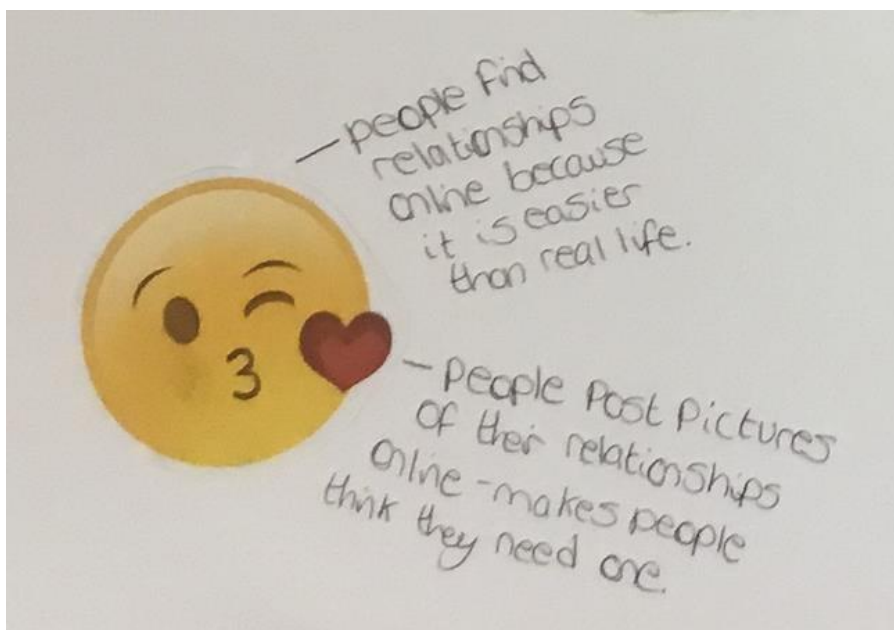 - people find
relationships
online because
it is easier
than real life.
- people post pictures
of their relationships
online - makes people
think they need one.